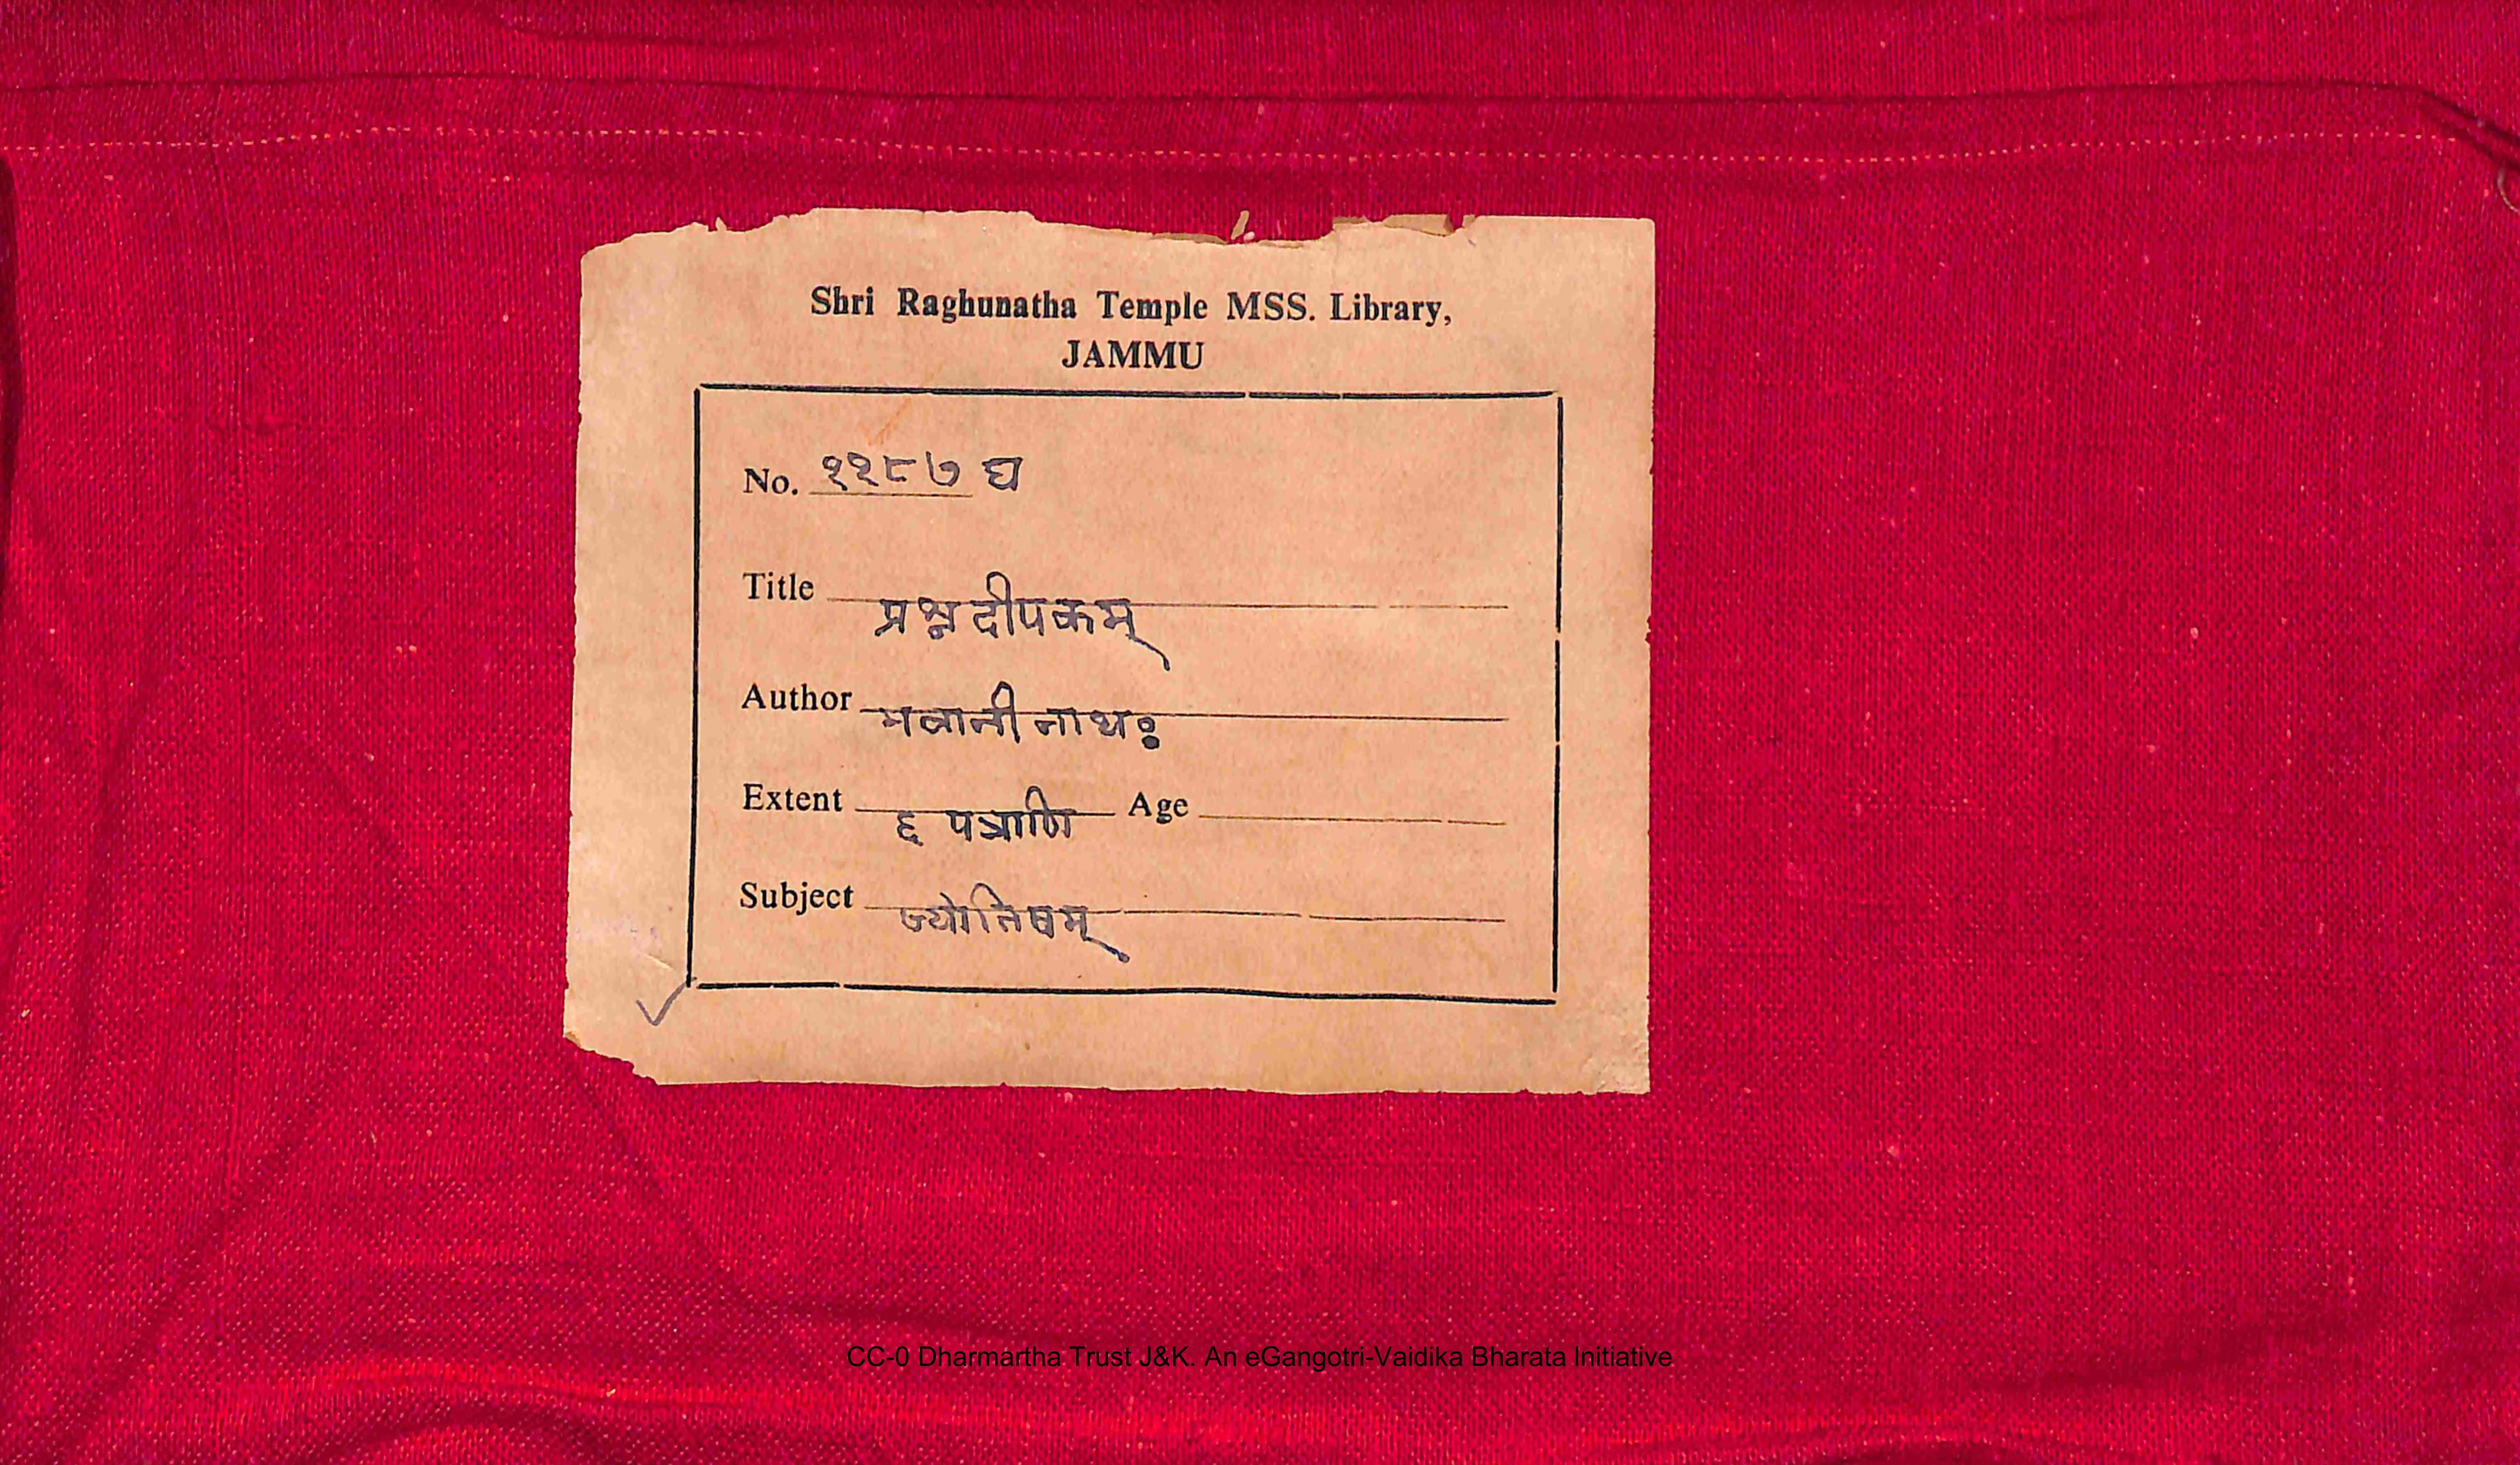 Shri Raghunatha Temple MSS. Library,
JAMMU
No. ११८७ घ
Title प्रश्नदीपकम्
Author भवानीनाथः
Extent ६ पत्राणि Age
Subject ज्योतिषम्
CC-0 Dharmartha Trust J&K. An eGangotri-Vaidika Bharata Initiative